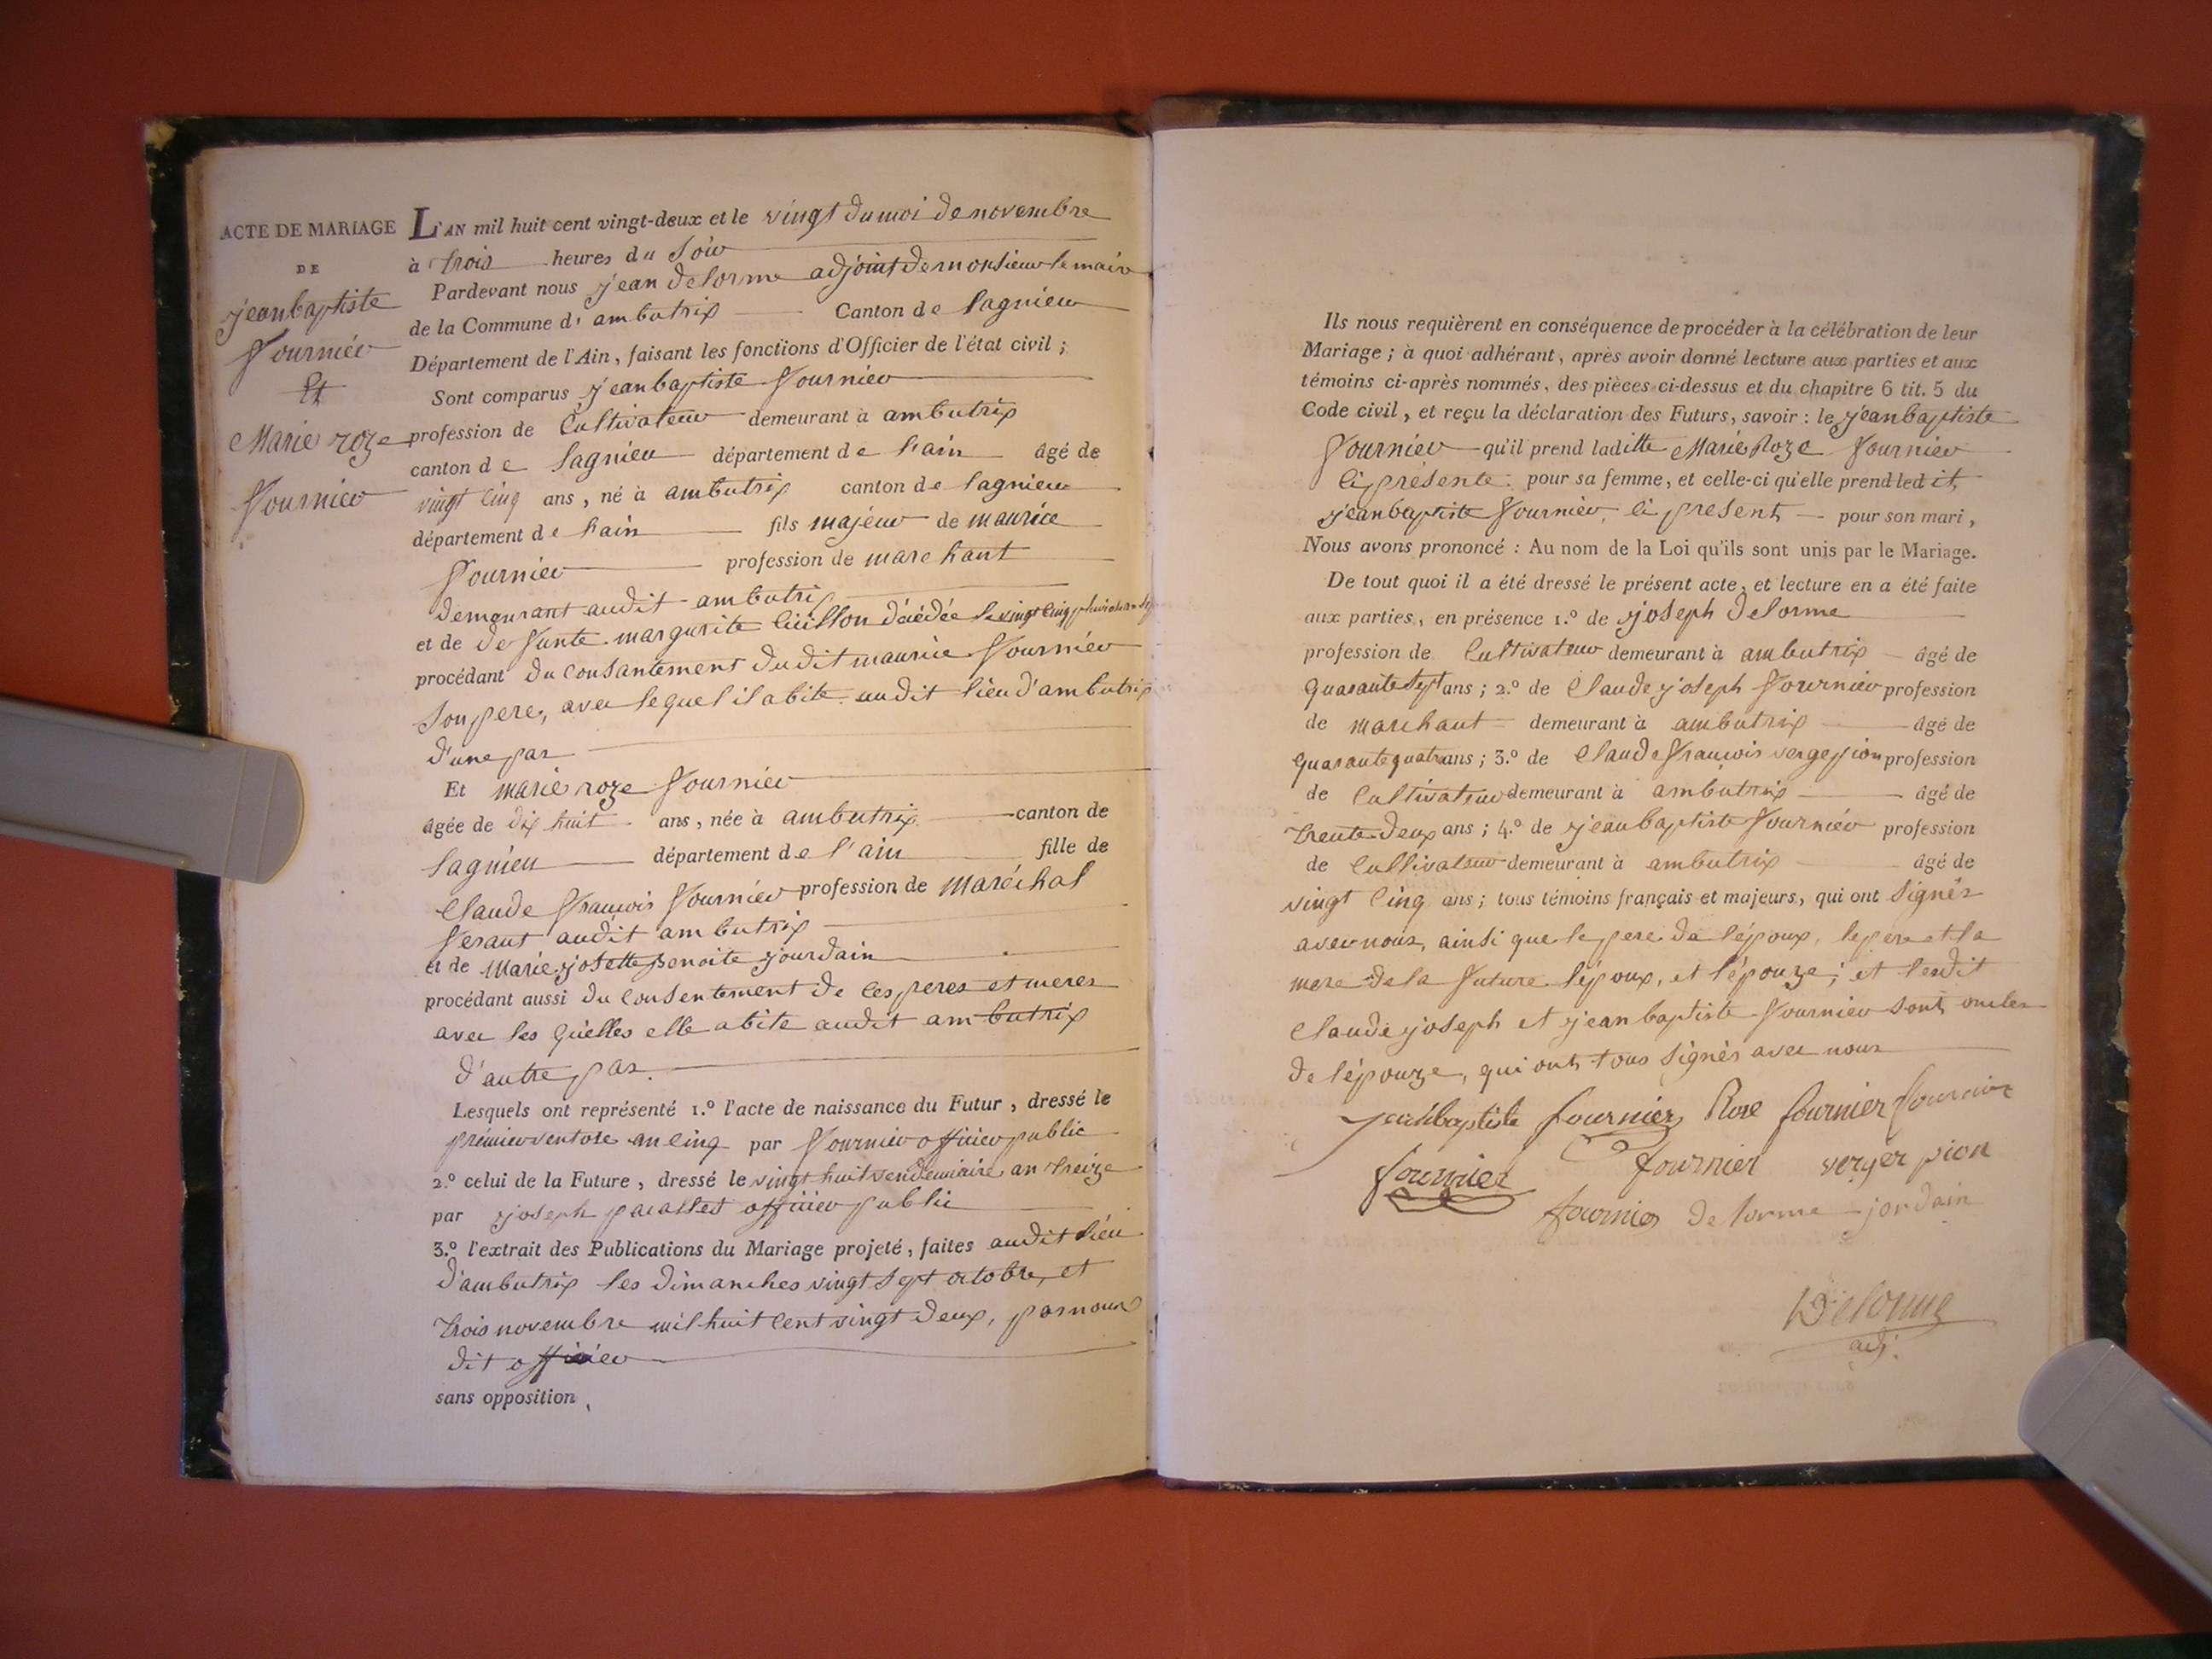 ACTE DE MARIAGE
DE
jean baptiste
fournier
Et
Marie roze
fournier
L'AN mil huit cent vingt-deux et le vingt du moi de novembre
à trois heures du soir
Pardevant nous jean delorme adjoint de monsieur le maire
de la Commune d' ambutrix Canton de lagnieu
Département de l'Ain, faisant les fonctions d'Officier de l'état civil ;
Sont comparus jean baptiste fournier
profession de Cultivateur demeurant à ambutrix
canton de lagnieu département de hain âgé de
vingt cinq ans, né à ambutrix canton de lagnieu
département de hain fils majeur de maurice
fournier profession de marchant
demeurant audit ambutrix
et de defunte margurite décédée le vingt cinq
procédant du consantement dudit maurice fournier
son pere, avec lequel il abite audit lieu d'ambutrix
d'une par
Et marie roze fournier
âgée de dix huit ans, née à ambutrix canton de
lagnieu département de l'ain fille de
Claude françois fournier profession de maréchal
ferant audit ambutrix
et de Marie josette Benoite jourdain
procédant aussi du consentement de ces peres et meres
avec les quelles elle abite audit ambutrix
d'autre par.
Lesquels ont représenté 1.º l'acte de naissance du Futur, dressé le
prémier ventose an cinq par fournier officier public
2.º celui de la Future, dressé le vingt huit vendemiaire an treize
par joseph officier public
3.º l'extrait des Publications du Mariage projeté, faites audit lieu
d'ambutrix les dimanches vingt sept octobre, et
trois novembre mil huit cent vingt deux, par nous
dit officier
sans opposition,
Ils nous requièrent en conséquence de procéder à la célébration de leur
Mariage ; à quoi adhérant, après avoir donné lecture aux parties et aux
témoins ci-après nommés, des pièces ci-dessus et du chapitre 6 tit. 5 du
Code civil, et reçu la déclaration des Futurs, savoir : le jean baptiste
fournier qu'il prend laditte Marie Roze fournier
ci présente pour sa femme, et celle-ci qu'elle prend ledit
jean baptiste fournier ci present pour son mari,
Nous avons prononcé : Au nom de la Loi qu'ils sont unis par le Mariage.
De tout quoi il a été dressé le présent acte, et lecture en a été faite
aux parties, en présence 1.º de joseph delorme
profession de Cultivateur demeurant à ambutrix âgé de
quarante sept ans ; 2.º de Claude joseph fournier profession
de marchant demeurant à ambutrix âgé de
quarante quatre ans ; 3.º de Claude françois verger pion profession
de Cultivateur demeurant à ambutrix âgé de
trente deux ans ; 4.º de jean baptiste fournier profession
de Cultivateur demeurant à ambutrix âgé de
vingt cinq ans ; tous témoins français et majeurs, qui ont signés
avec nous, ainsi que le pere de l'époux, le pere et la
mere de la future l'époux, et l'épouze ; et lesdit
Claude joseph et jean baptiste fournier sont oncles
de l'épouze, qui ont tous signés avec nous
jean baptiste fournier Rose fournier
fournier fournier verger pion
fournier delorme jordain
Delorme
adj.